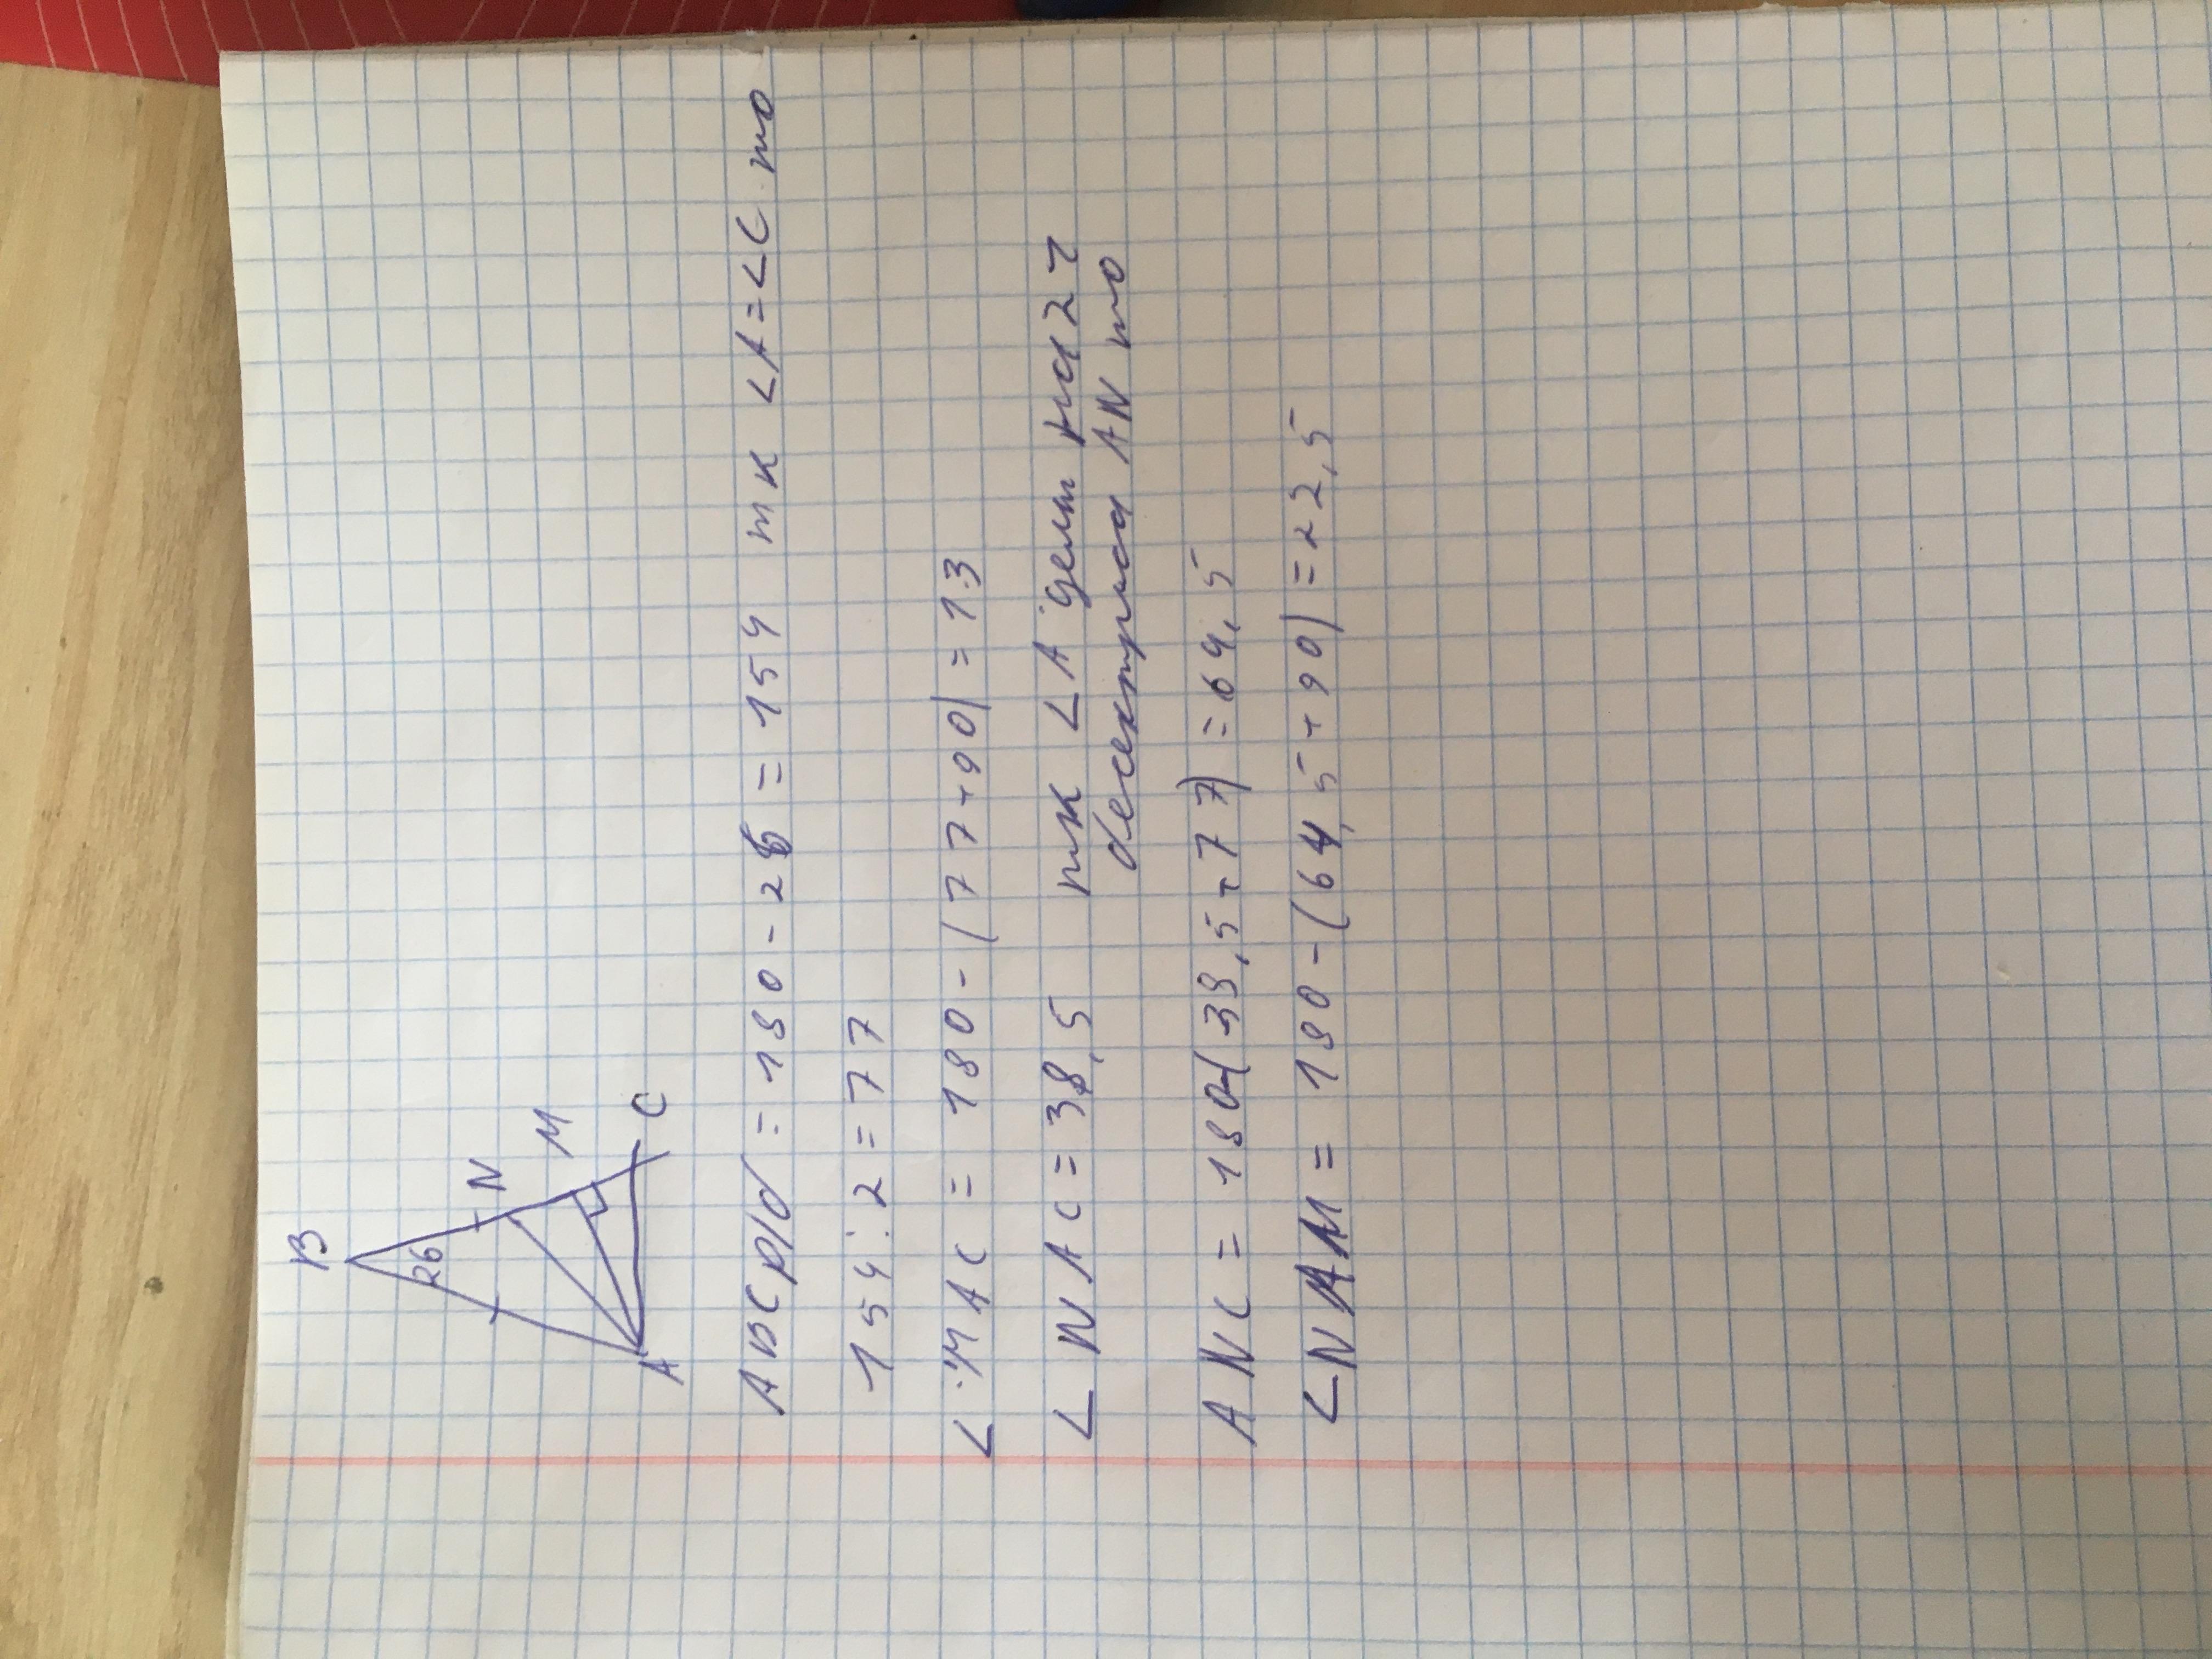 B
26
N
M
A
C
ABC р/б = 180 - 26 = 154 тк ∠A = ∠C то
154 : 2 = 77
∠ MAC = 180 - (77+90) = 13
∠ NAC = 38,5 тк ∠ A делит на 2 ч
бесектриса AN то
ANC = 180-(38,5+77) = 64,5
∠NAM = 180-(64,5+90) = 22,5